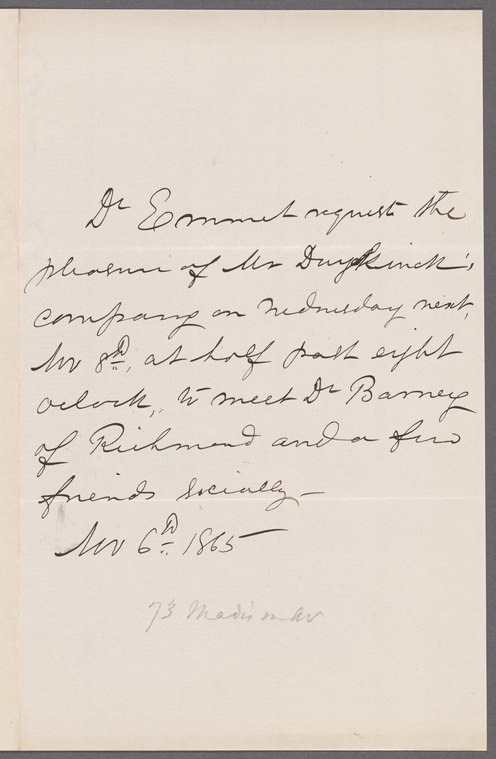 Dr Emmet request the
pleasure of Mr Duyckinck's
company on Wednesday next,
Nov 8th, at half past eight
oclock, to meet Dr Barney
of Richmond and a few
friends socially—
Nov 6th 1865—
73 Madison Av